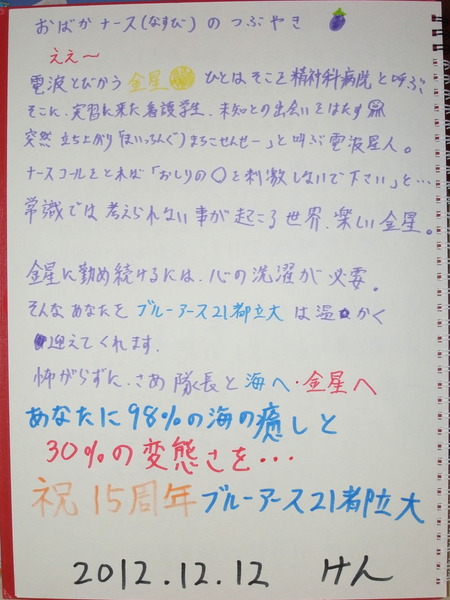 おばかナース(なすび)のつぶやき
ええ〜
電波とびかう金星 ひとはそこを精神科病院と呼ぶ
そこに、実習に来た看護学生、未知との出会いをはたす
突然立ち上がり「まいっちんぐ!まちこせんせー」と叫ぶ電波星人。
ナースコールをとれば「おしりの○を刺激しないで下さい」と…
常識では考えられない事が起こる世界、楽しい金星。
金星に勤め続けるには、心の洗濯が必要。
そんなあなたを ブルーアース21都立大 は温かく
迎えてくれます。
怖がらずに、さあ隊長と海へ・金星へ
あなたに98%の海の癒しと
30%の変態さを・・・
祝15周年ブルーアース21都立大
2012.12.12 けん